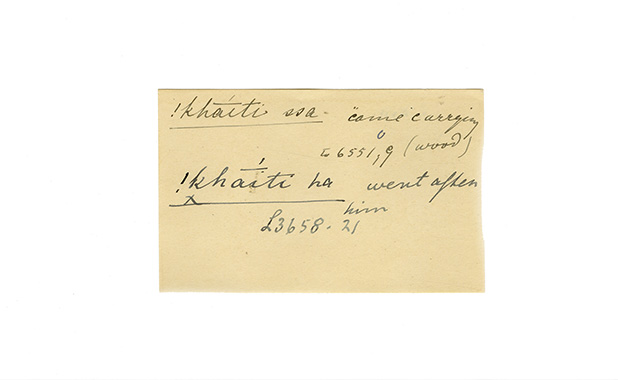 !kháïti ssa "come" carrying
L 6551, 9 (wood)
!khá́iti ha went after
him
L3658. 21